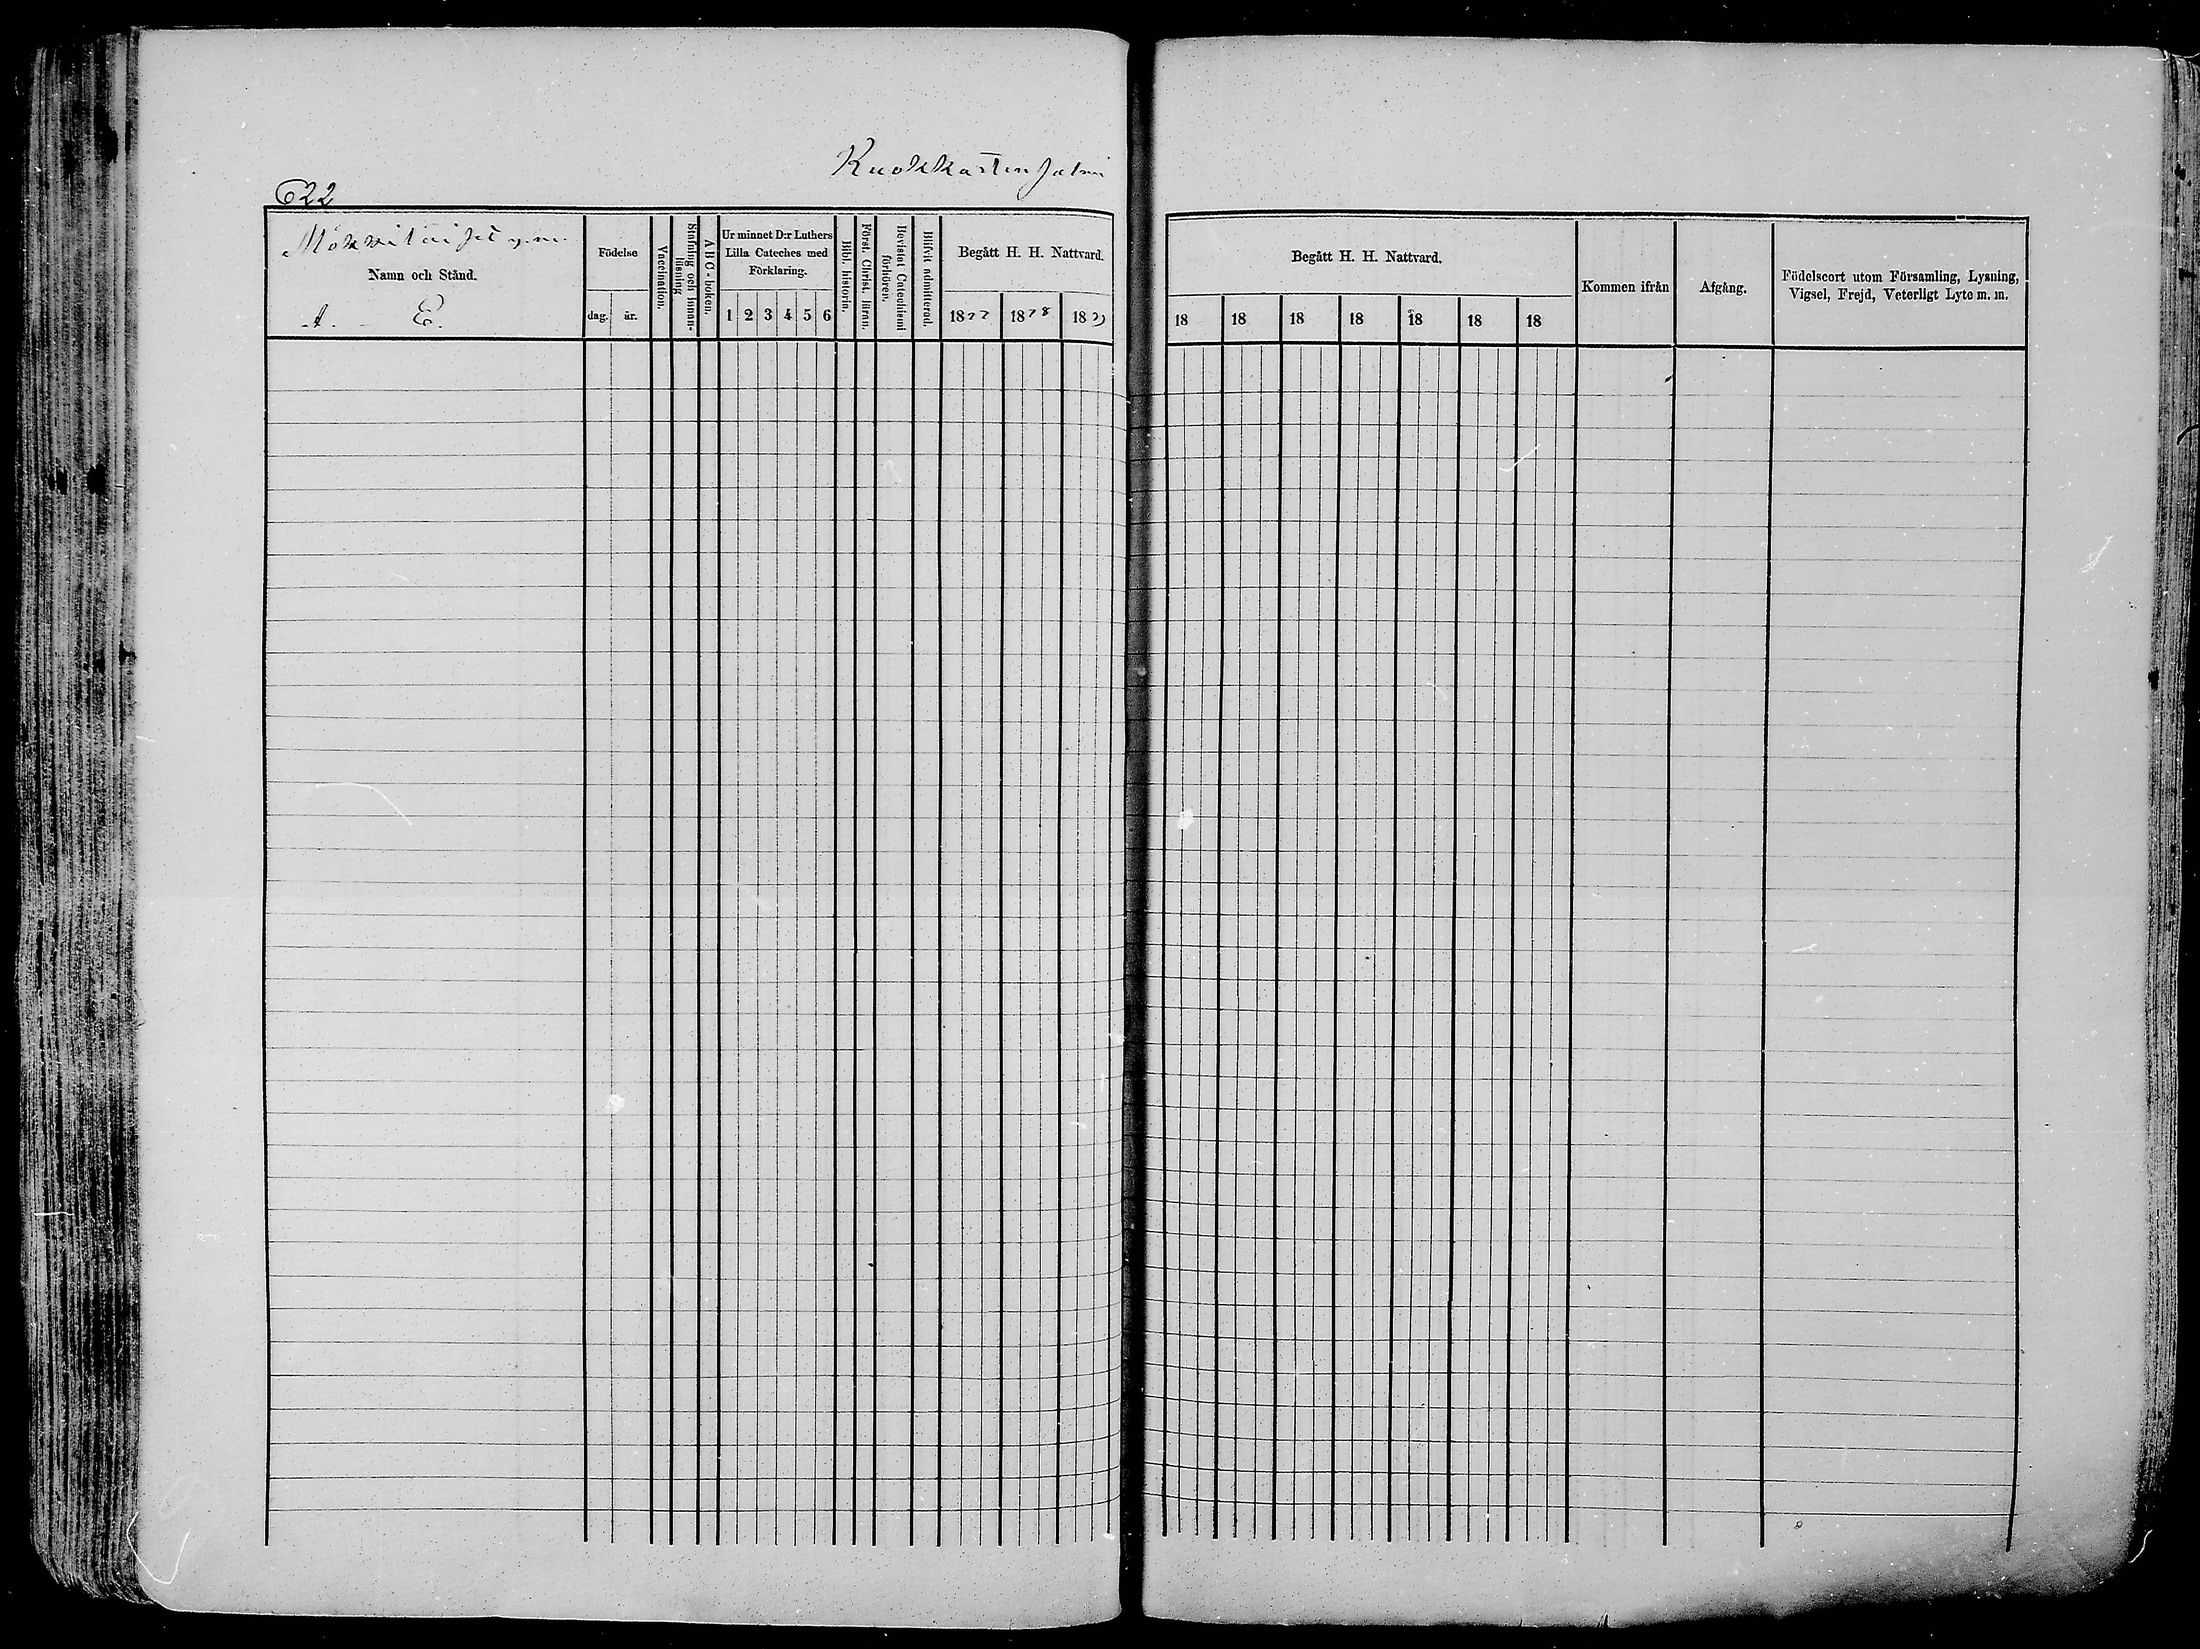 622
Mökkiläiset y.m.
Namn och Stånd.
A. E.
Födelse
dag. år.
Vaccination.
Stafning och innan-
läsning
ABC-boken.
Ur minnet D:r Luthers
Lilla Cateches med
Förklaring.
1 2 3 4 5 6
Bibl. historia.
Först. Christ. läran.
Bevistat Catechismi
förhören.
Blifvit admitterad.
Begått H. H. Nattvard.
1877 1878 1879
Begått H. H. Nattvard.
18 18 18 18 18 18 18
Kommen ifrån
Afgång.
Födelseort utom Församling, Lysning,
Vigsel, Frejd, Veterligt Lyte m. m.